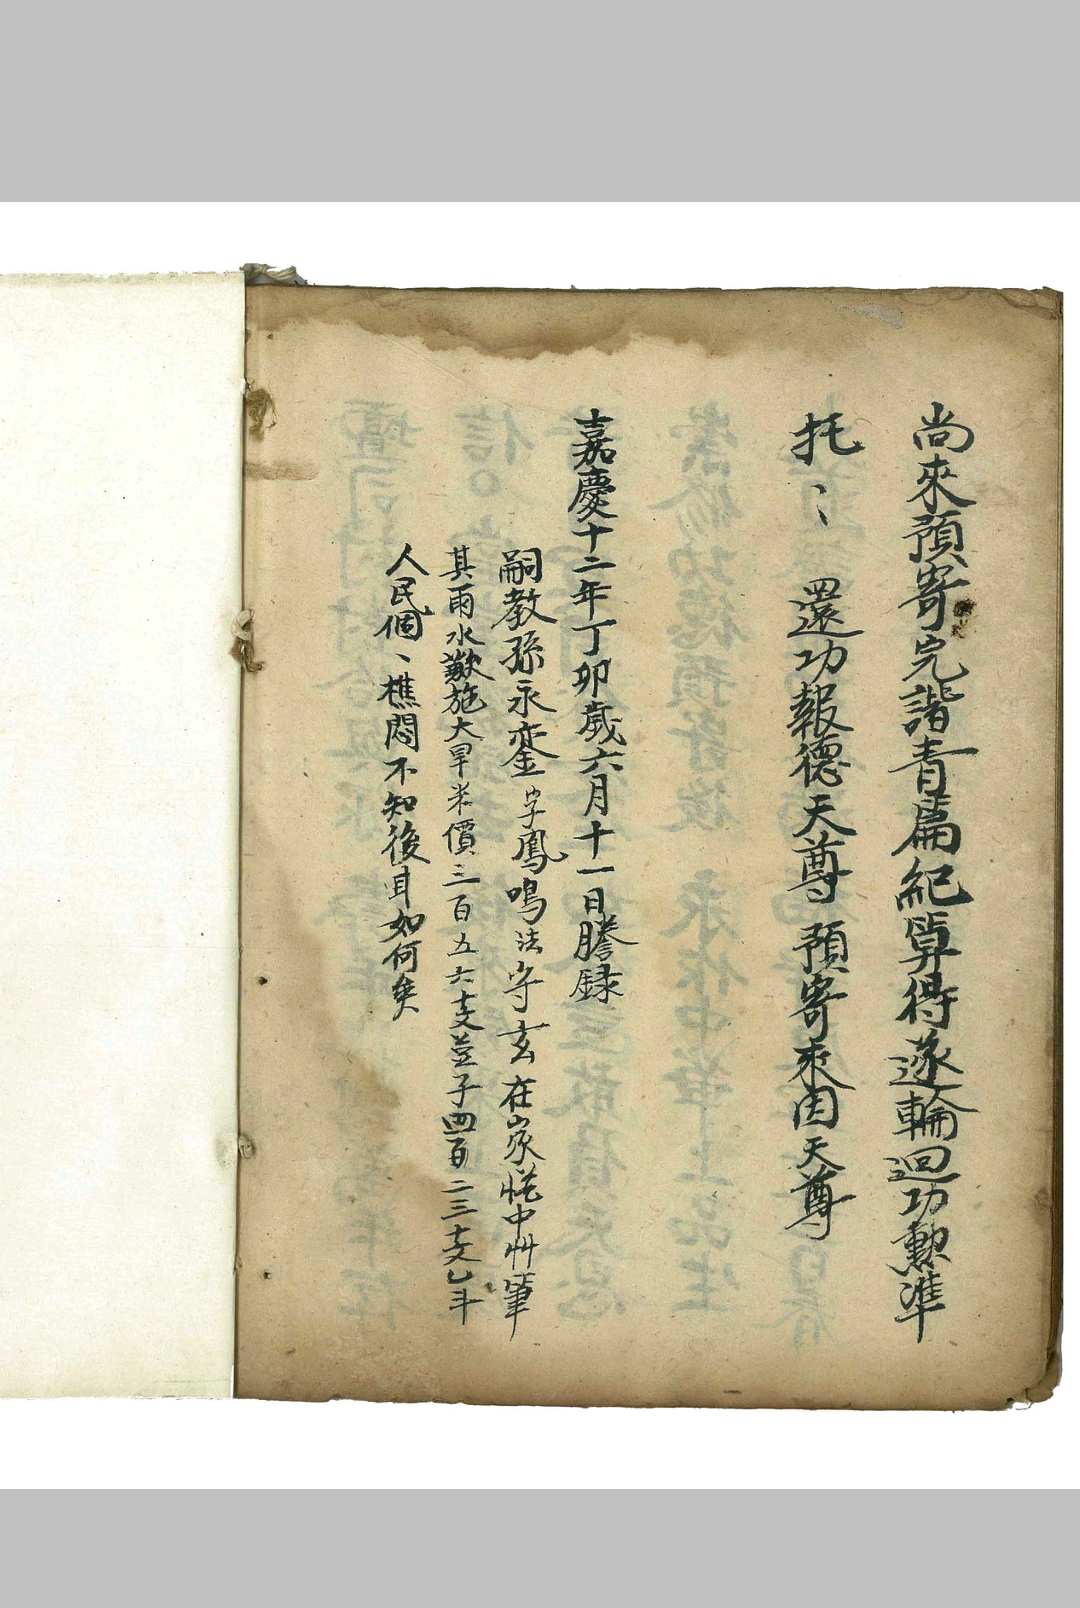 尚來預寄完諧青篇紀算得遂輪迴功勳準
托〻 還功報德天尊 預寄來因天尊
嘉慶十二年丁卯歲六月十一日謄錄
嗣教孫永鑾字鳳鳴法守玄在家悅中艸筆
其雨水歉施大旱米價三百五六支荳子四百二三支乚斗
人民個〻樵悶不知後耳如何矣